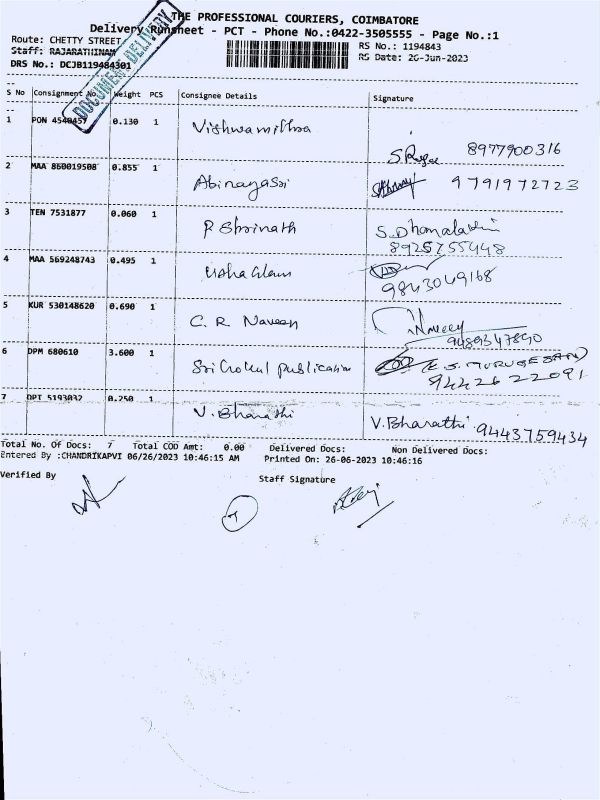 THE PROFESSIONAL COURIERS, COIMBATORE
Delivery Runsheet - PCT - Phone No.:0422-3505555 - Page No.:1
Route: CHETTY STREET
Staff: RAJARATHINAM
DRS No.: DCJB119484301
RS No.: 1194843
RS Date: 26-Jun-2023
DOCUMENT DELIVERY
S No Consignment No. Weight PCS Consignee Details Signature
1 PON 4540457 0.130 1 Vishwamithra
8977900316
2 MAA 860019508 0.855 1 Abinayasri 9791972723
3 TEN 7531877 0.060 1 P Shrinath S. Dhanalakshmi
8925755448
4 MAA 569248743 0.495 1 Usha
9843049168
5 KUR 530148620 0.690 1 C. R. Naveen Naveen
9489347890
6 DPM 680610 3.600 1 Sri Gokul publication (E.S. MURUGESAN)
94426 22091
7 DPT 5193032 0.250 1 V. Bharathi V. Bharathi 9443759434
Total No. Of Docs: 7 Total COD Amt: 0.00 Delivered Docs: Non Delivered Docs:
Entered By :CHANDRIKAPVI 06/26/2023 10:46:15 AM Printed On: 26-06-2023 10:46:16
Verified By Staff Signature
7